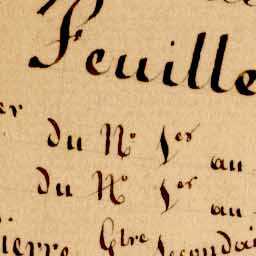 Feuille
er du N° 1er au
du N° 1er au
ierre Gtre Secondai